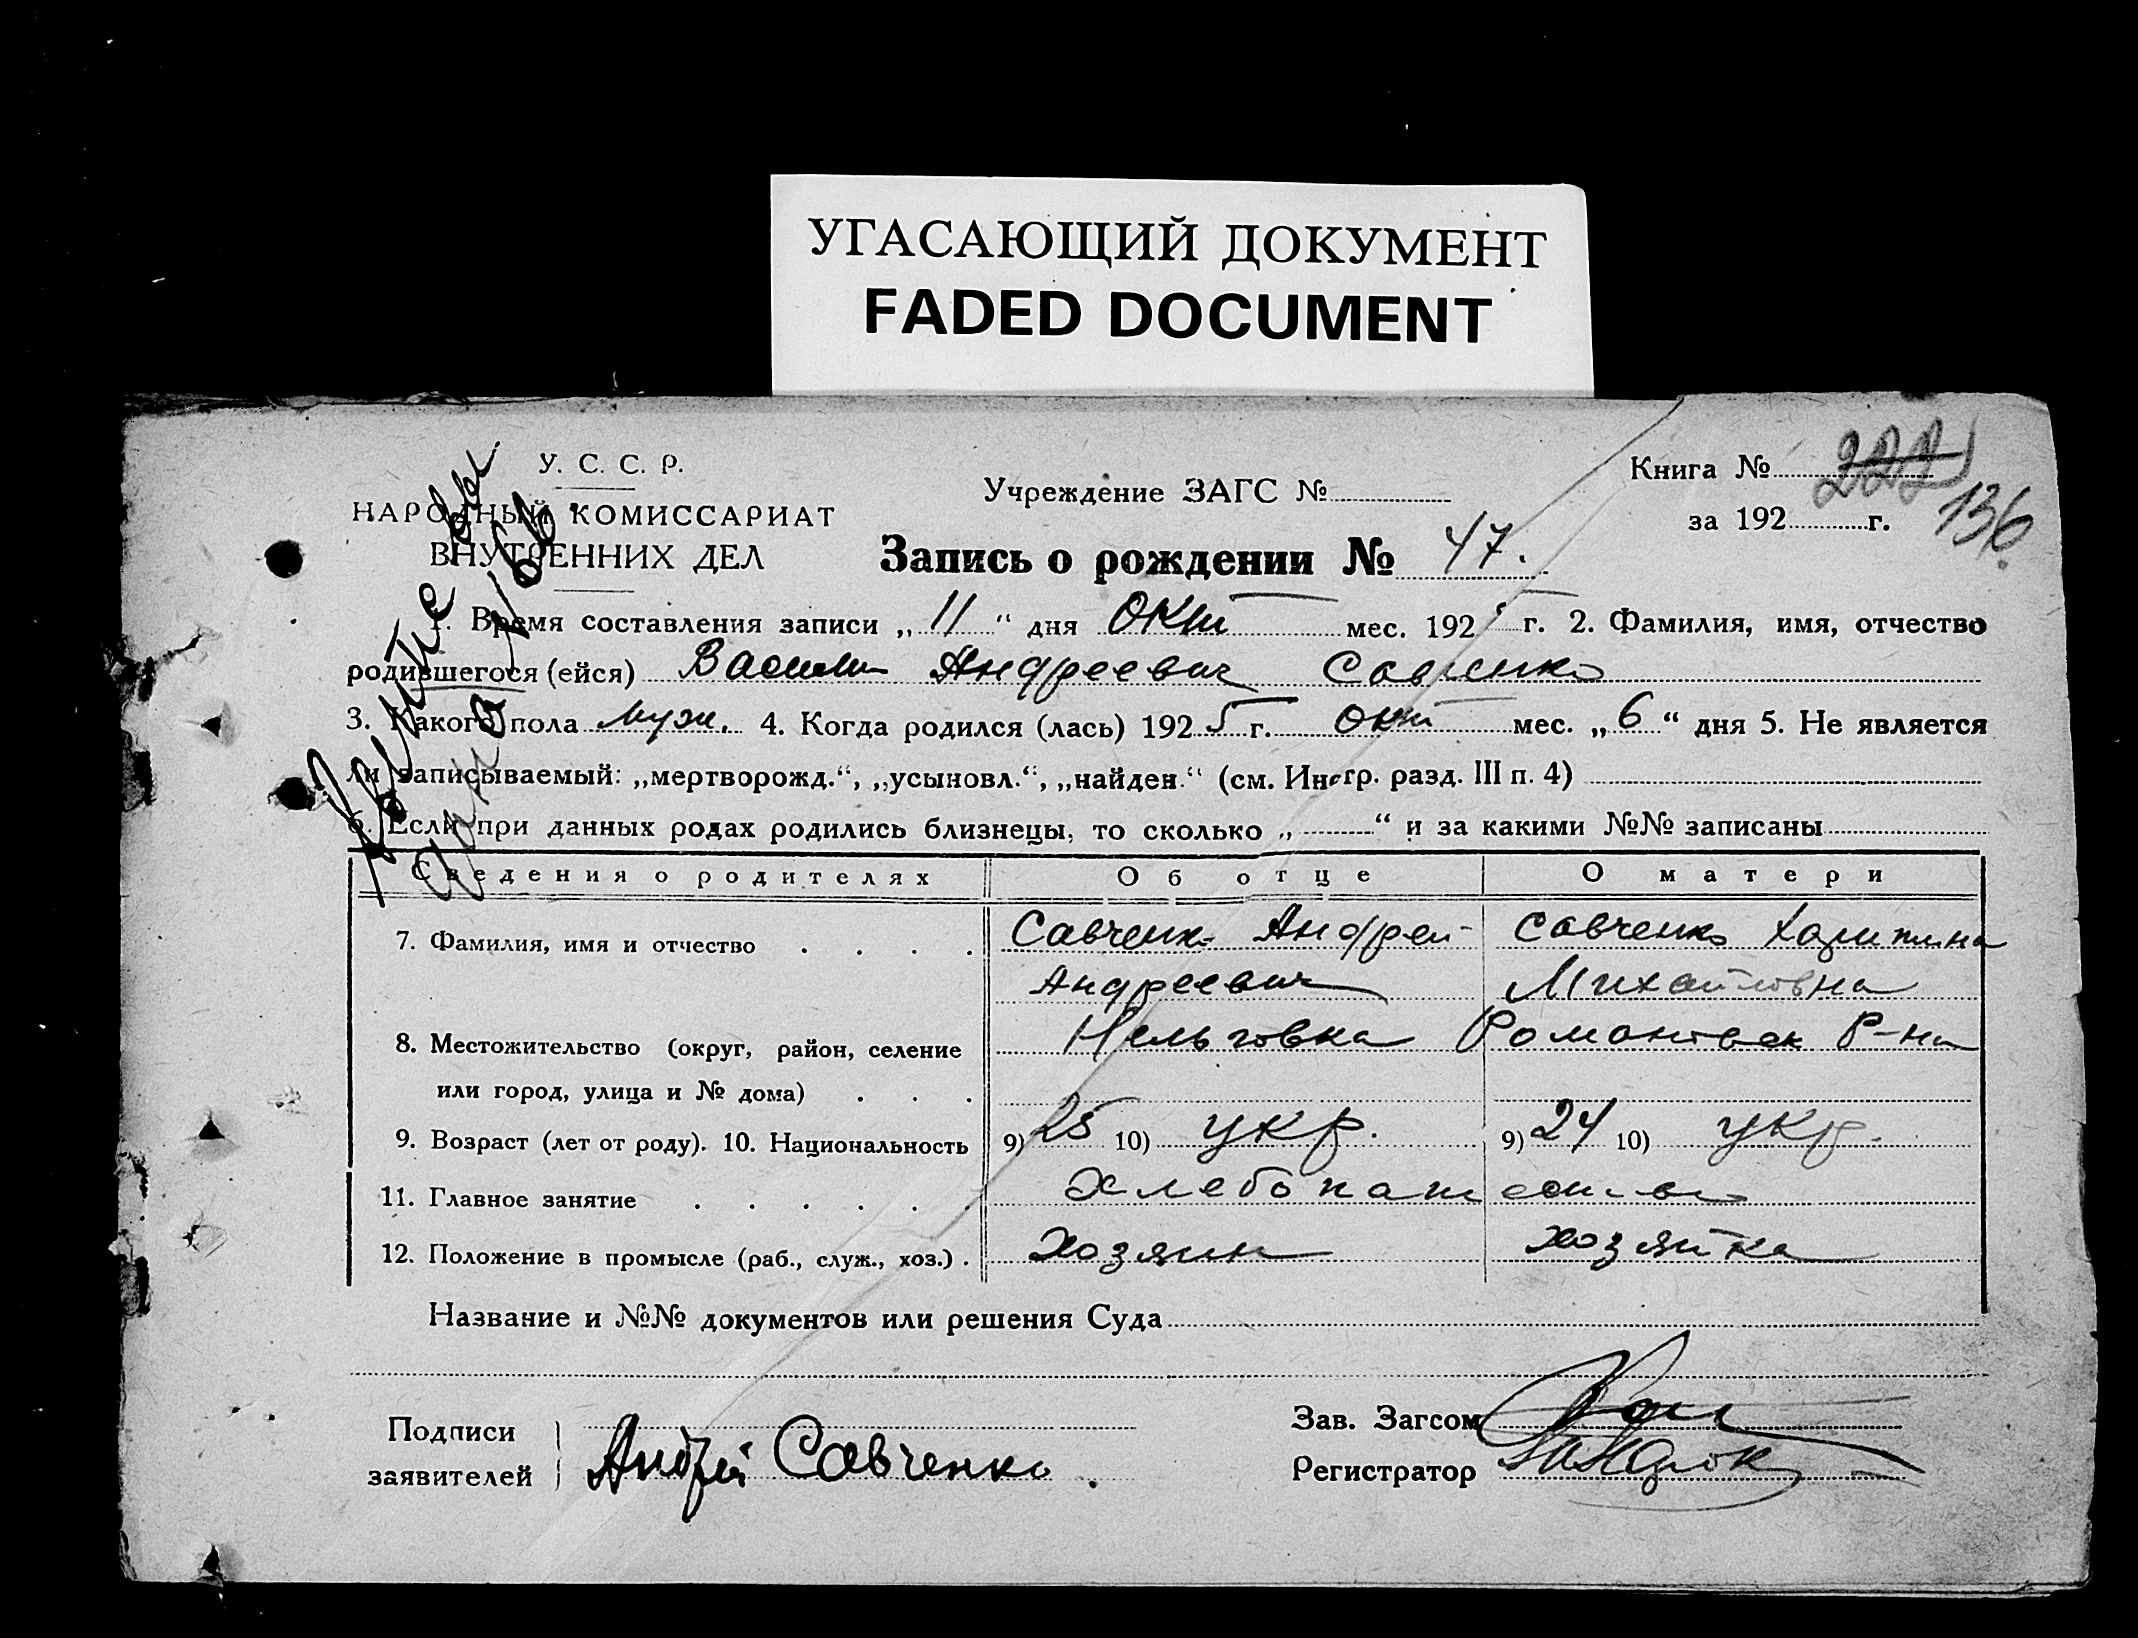 УГАСАЮЩИЙ ДОКУМЕНТ
FADED DOCUMENT
У. С. С. Р.
НАРОДНЫЙ КОМИССАРИАТ
ВНУТРЕННИХ ДЕЛ
Учреждение ЗАГС №
Книга № 222
за 192 г. 136
Запись о рождении № 47.
1. Время составления записи „11“ дня окт мес. 1925 г. 2. Фамилия, имя, отчество
родившегося (ейся) Василий Андреевич Савченко
3. Какого пола муж. 4. Когда родился (лась) 1925 г. окт мес. „6“ дня 5. Не является
ли записываемый: „мертворожд.“, „усыновл.“, „найден.“ (см. Инстр. разд. III п. 4)
6. Если при данных родах родились близнецы, то сколько „ “ и за какими №№ записаны
Сведения о родителях Об отце О матери
7. Фамилия, имя и отчество Савченко Андрей Савченко Харитина
Андреевич Михайловна
8. Местожительство (округ, район, селение Нельговка Романовск Р-на
или город, улица и № дома)
9. Возраст (лет от роду). 10. Национальность 9) 25 10) укр. 9) 24 10) укр.
11. Главное занятие Хлебопашество
12. Положение в промысле (раб., служ., хоз.) хозяин хозяйка
Название и №№ документов или решения Суда
Подписи
заявителей Андрей Савченко.
Зав. Загсом
Регистратор